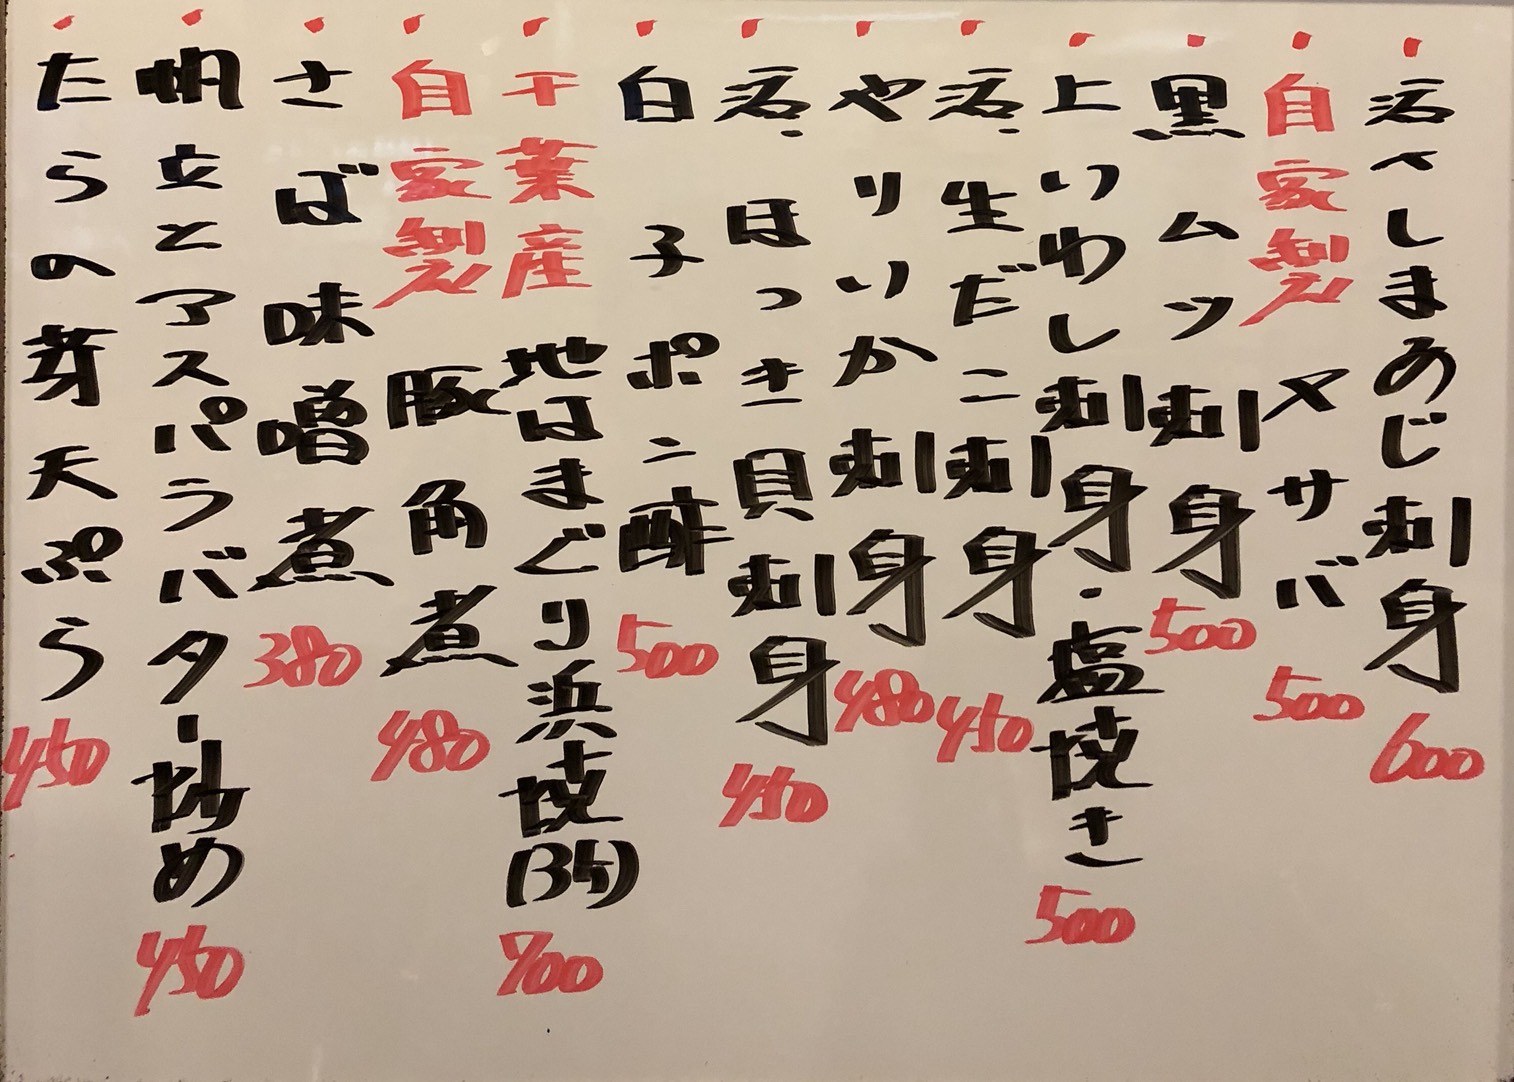 活〆しまあじ刺身 600
自家製 〆サバ 500
黒ムツ刺身 500
上いわし刺身・塩焼き 500
活・生だこ刺身 450
やりいか刺身 480
活・ほっき貝刺身 450
白子ポン酢 500
千葉産 地はまぐり浜焼(3ケ) 700
自家製 豚角煮 480
さば味噌煮 380
帆立とアスパラバター炒め 450
たらの芽天ぷら 450